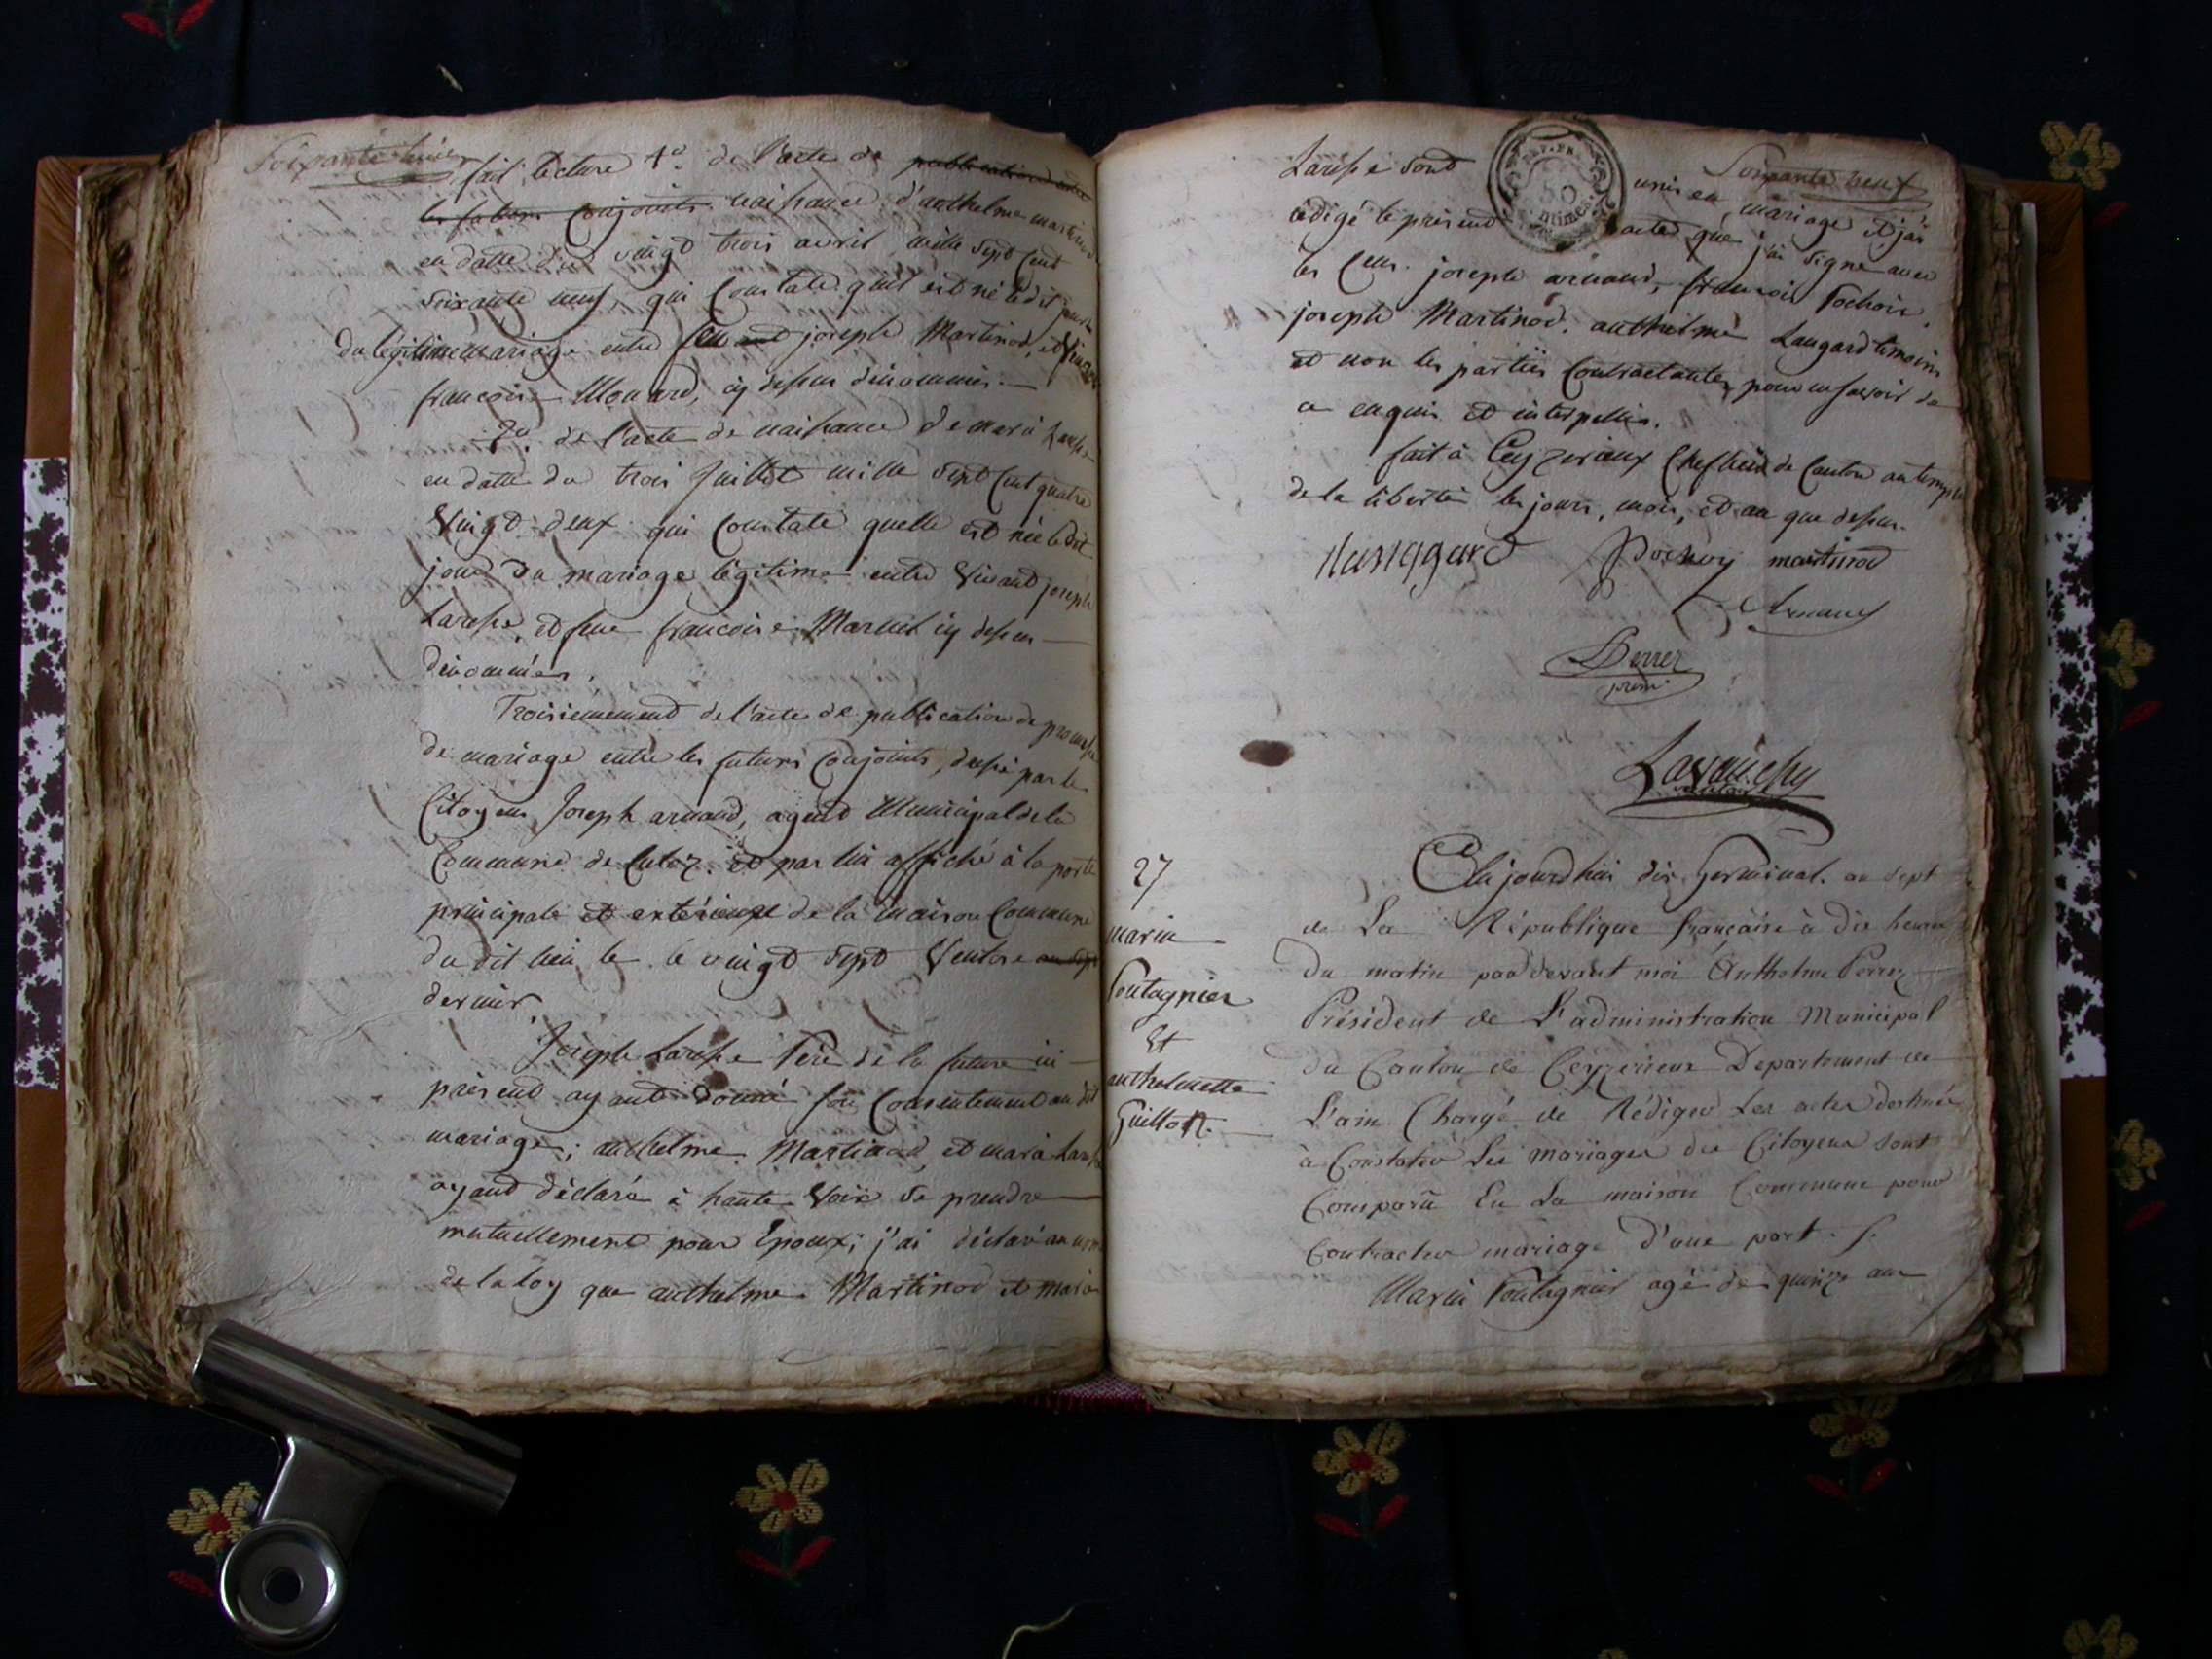 Soixante huit
fait lecture 1º de l'acte de publication entre
les futurs conjoints naissance d'anthelme martinod
en datte du vingt trois avril mille sept cent
soixante neuf, qui constate quil est né ledit jour
du légitime mariage entre feu joseph Martinod, et
francoise Monard, cy dessus dénommés.
2º de l'acte de naissance de marie Larosse
en datte du trois juillet mille sept cent quatre
vingt deux qui constate quelle est née ledit
jour du mariage légitime entre vivant joseph
Larosse, et feue francoise cy dessus
dénommés.
Troisiemement de l'acte de publication de promesse
de mariage entre les futurs conjoints, dressé par le
Citoyen Joseph arnaud, agent Municipal de la
Commune de Culoz. et par lui affiché à la porte
principale et extérieure de la maison Commune
du dit lieu le le vingt sept Ventose an sept
dernier.
Joseph Larosse Père de la future ici
présent ayant donné son consentement au dit
mariage; anthelme Martinod, et marie Larosse
ayant déclaré à haute voix se prendre
mutuellement pour Epoux; j'ai déclaré au nom
de la loy que anthelme Martinod et marie
Soixante neuf
Larosse sont unis en mariage et j'ai
rédigé le présent acte que j'ai signé avec
les Cens. joseph arnaud, francois Pochoix,
joseph Martinod. anthelme Laugard temoins
et non les parties Contractantes, pour ne savoir de
ce enquis et interpellés.
fait à Ceyzerieux Cheflieu de Canton au temple
de la liberté les jours, mois, et an que dessus.
Pochoy martinod
Arnaud
Perrez
présid.
27
marin
Poutagnier
Et
anthelmette
Guillon
Aujourdhui dix Germinal. an sept
de La République française à dix heures
du matin pardevant moi Anthelme Perrez
Président de L'administration Municipal
du Canton de Ceyzerieux Departement de
L'ain Chargé de Rédiger Les actes destinés
à Constater Les mariages des Citoyens sont
Comparu En La maison Commune pour
Contracter mariage D'une part.
Marin Poutagnier agé de quinze ans